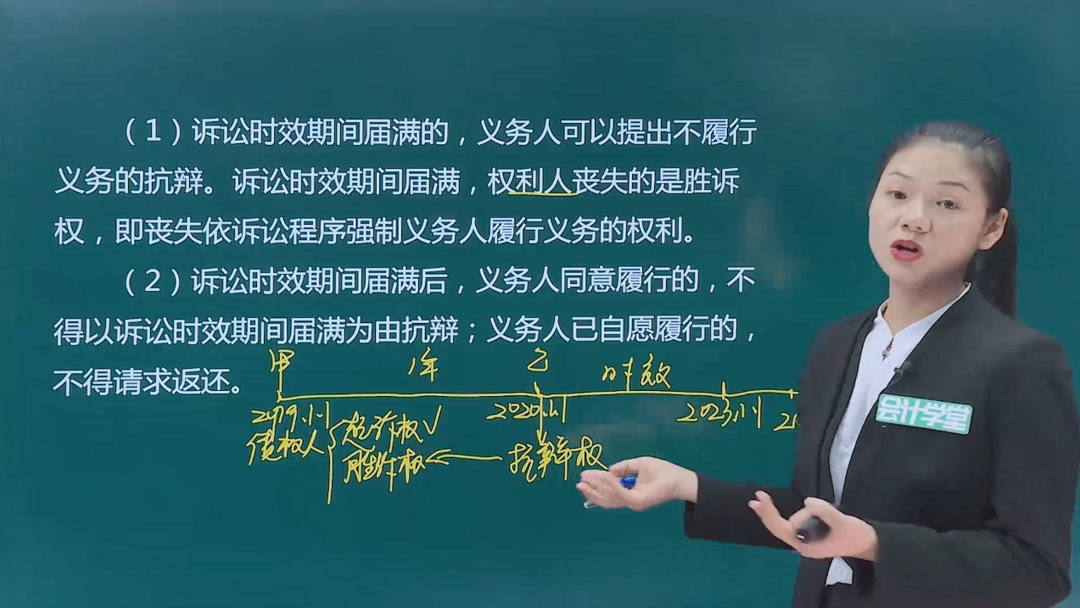 （1）诉讼时效期间届满的，义务人可以提出不履行
义务的抗辩。诉讼时效期间届满，权利人丧失的是胜诉
权，即丧失依诉讼程序强制义务人履行义务的权利。
（2）诉讼时效期间届满后，义务人同意履行的，不
得以诉讼时效期间届满为由抗辩；义务人已自愿履行的，
不得请求返还。
甲 1年 乙 时效
2019.1.1 2020.1.1 2023.1.1
债权人 起诉权√
胜诉权 抗辩权
会计学堂